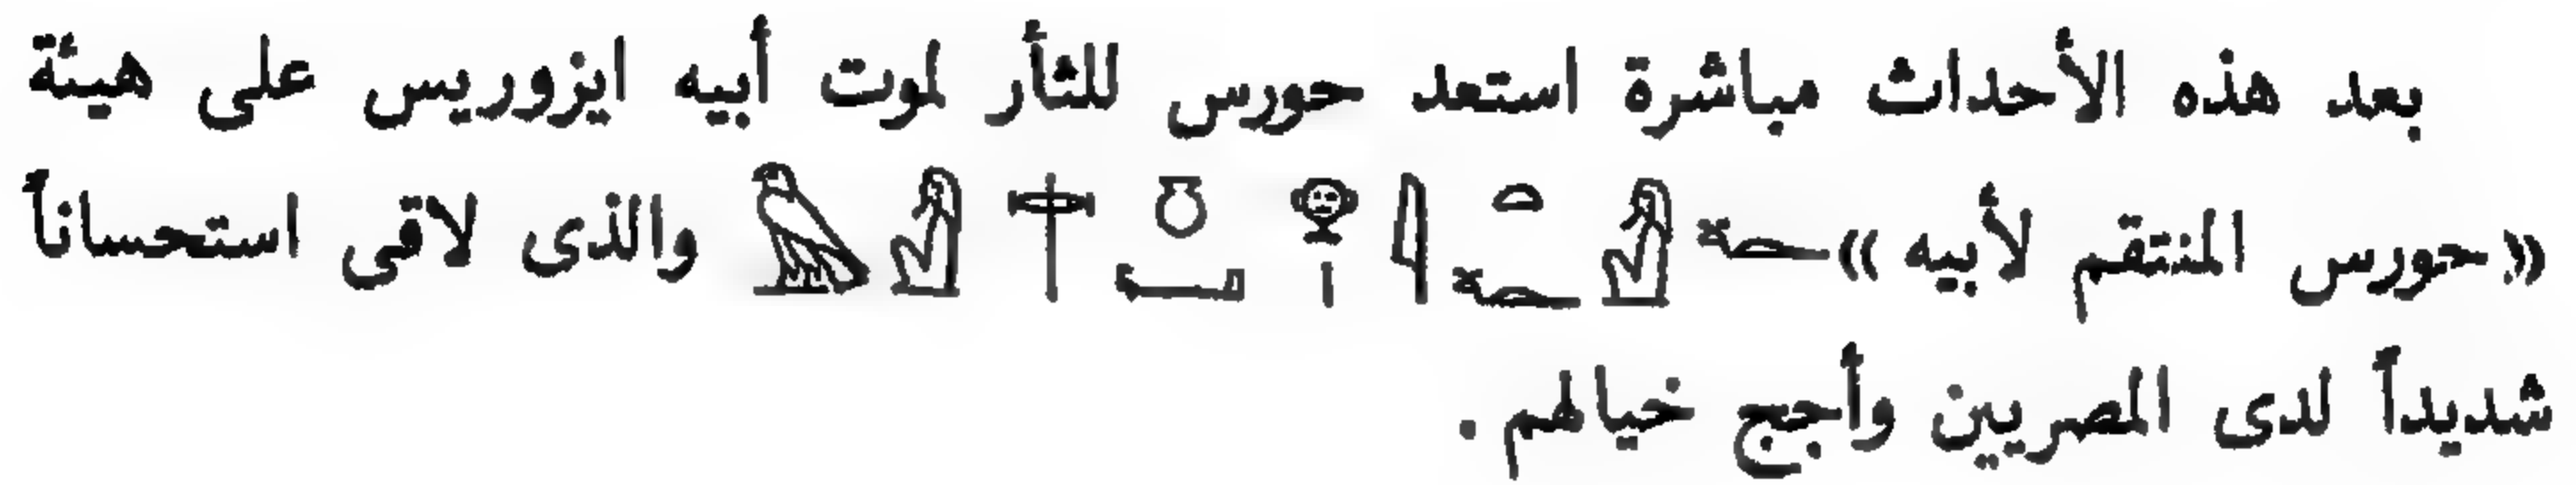 بعد هذه الأحداث مباشرة استعد حورس للثأر لموت أبيه ايزوريس على هيئة
«حورس المنتقم لأبيه» والذى لاقى استحساناً
شديداً لدى المصريين وأجج خيالهم .